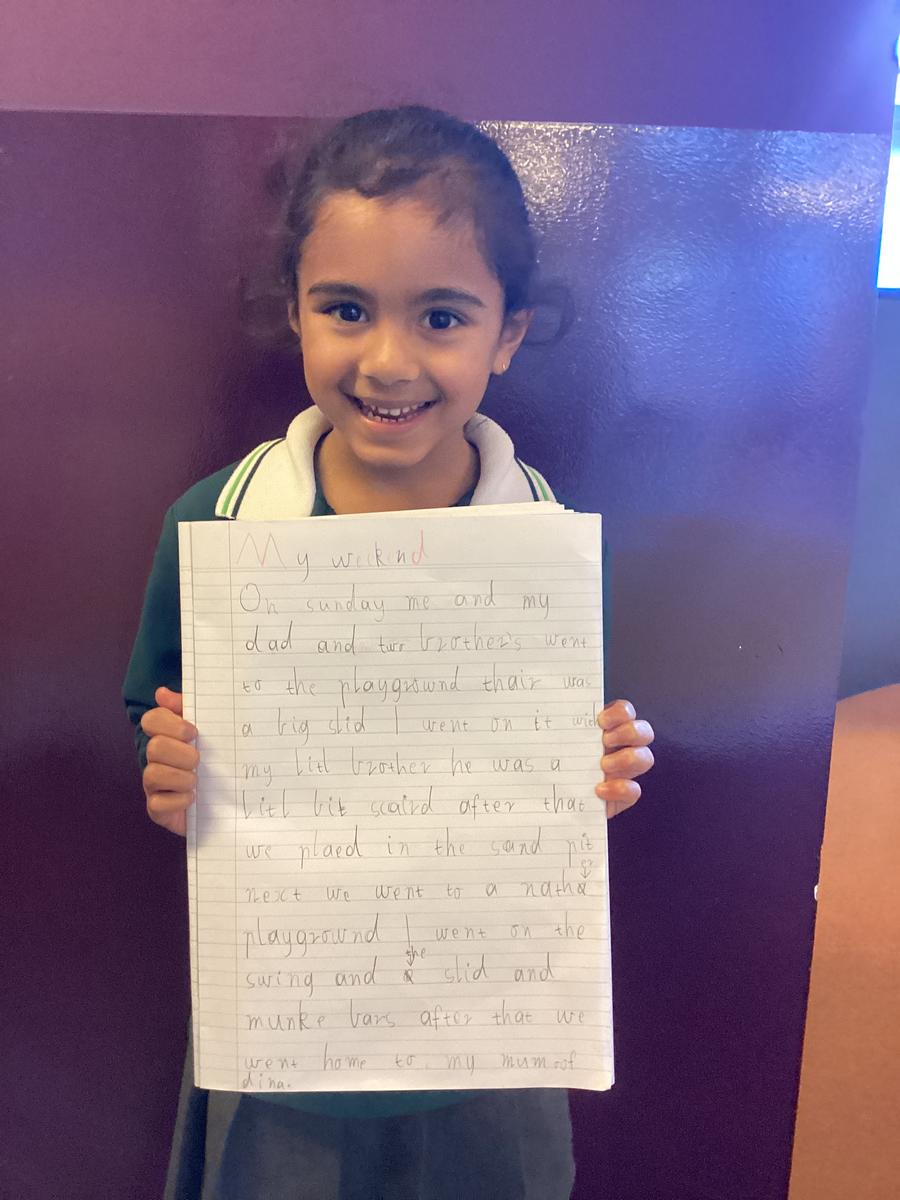 My weekend
On sunday me and my
dad and two brother's went
to the playgrownd thair was
a big slid I went on it with
my litl brother he was a
litl bit scaird after that
we plaed in the sand pit
er
next we went to a nath
playgrownd I went on the
the
swing and slid and
munke bars after that we
went home to my mum
dina.